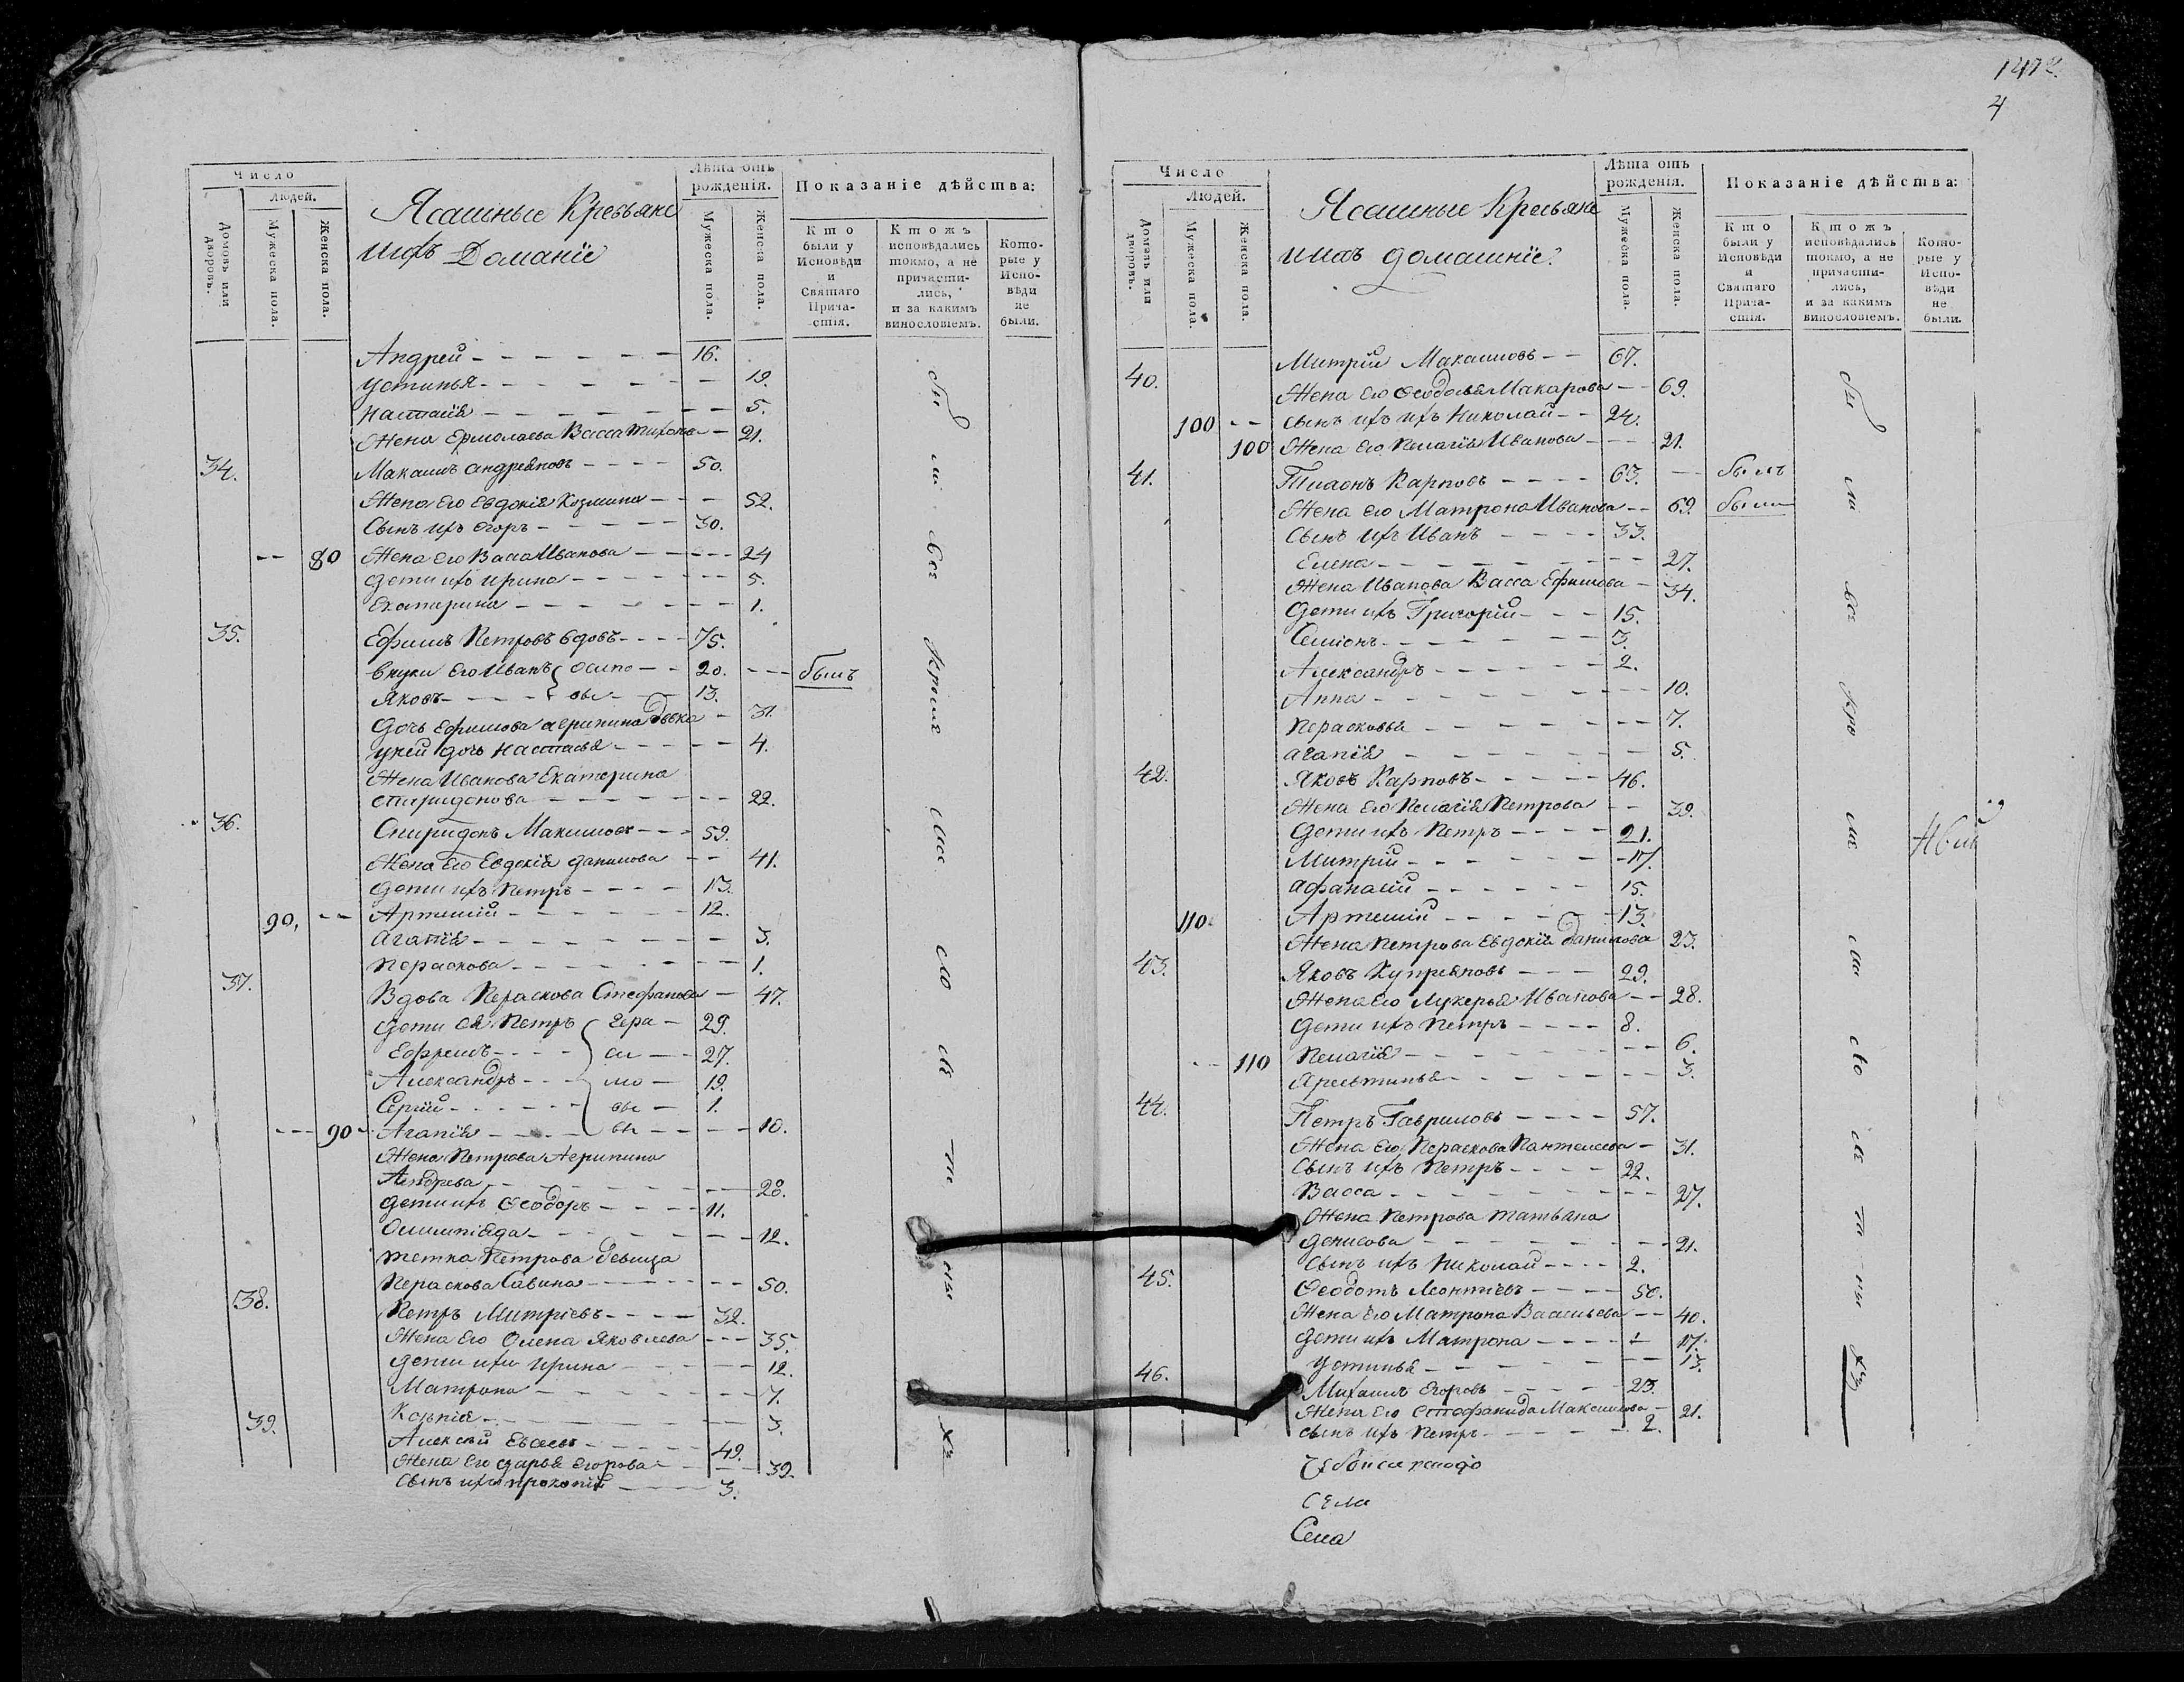 1472.
4
Число
Людей.
Домовъ или дворовъ.
Мужеска пола.
Женска пола.
Ясашные Кресьяне
ихъ Доманіе
Лѣта отъ рожденія.
Мужеска пола.
Женска пола.
Показаніе дѣйства:
Кто были у Исповѣди и Святаго Причастія.
Ктожъ исповѣдались токмо, а не причастились, и за какимъ винословіемъ.
Которые у Исповѣди не были.
Андрей - - - 16.
Устинья - - - 19.
Настасія - - - 5.
Жена Ермолаева Васса Тихонова - 21.
34. Макаимъ Андреяновъ - - - 50.
Жена Его Евдокія Козмина - - - 52.
Сынъ ихъ Егоръ - - - 30.
-- 80 Жена его Васса Иванова - - - 24
Дети ихъ Ирина - - - 5.
Екатерина - - - 1.
35. Ефимъ Петровъ вдовъ - - - 75.
внуки Его Иванъ { Осипо - - 20. - - - былъ
Яковъ - - - { вы - - 13.
Дочь Ефимова Агрипина девка - 31.
у ней дочь Настасья - - - 4.
Жена Иванова Екатерина
Спиридонова - - - 22.
36. Спиридонъ Макимовъ - - - 59.
Жена Его Евдокія Данилова - - 41.
Дети ихъ Петръ - - - 13.
90, -- Артемий - - - 12.
Агапія - - - 3.
Пераскова - - - 1.
37. Вдова Пераскова Стефанова - 47.
Дети ея Петръ { Гера - 29.
Ефремъ - - - си - - 27.
Александръ - - - мо - 19.
Сергій - - - вы - 1.
--- 90 - Агапія - - - 10.
Жена Петрова Агрипина
Андреева - - - 28.
Дети ихъ Феодоръ - - - 11.
Олимпіеда - - - 12.
тетка Петрова девица
Пераскова Савина - - - 50.
38. Петръ Митріевъ - - - 32.
Жена Его Олена Яковлева - - - 35.
Дети ихъ Ирина - - - 12.
Матрона - - - 7.
Ксенія - - - 3.
39. Алексѣй Евсеевъ - - - 49.
Жена Его Дарья Егорова - - - 39.
Сынъ ихъ Прокопій - - - 3.
Число
Людей.
Домовъ или дворовъ.
Мужеска пола.
Женска пола.
Ясашные Кресьяне
ихъ домашніе
Лѣта отъ рожденія.
Мужеска пола.
Женска пола.
Показаніе дѣйства:
Кто были у Исповѣди и Святаго Причастія.
Ктожъ исповѣдались токмо, а не причастились, и за какимъ винословіемъ.
Которые у Исповѣди не были.
40. Митрій Макаимовъ - - 67.
Жена Его Феодосья Макарова - - 69.
100 -- Сынъ ихъ ихъ Николай - - 24.
100 Жена Его Пелагія Иванова - - - 21.
41. Карповъ - - - 63. - былъ
Жена его Матрона Иванова - - 69. была
Сынъ ихъ Иванъ - - - 33.
Елена - - - 27.
Жена Иванова Васса Ефимова - 34.
Дети ихъ Григорій - - - 15.
Семіонъ - - - 3.
Александръ - - - 2.
Анна - - - 10.
Перасковья - - - 7.
Агапія - - - 5.
42. Яковъ Карповъ - - - 46.
Жена Его Пелагія Петрова - - 39.
Дети ихъ Петръ - - - 21.
Митрій - - - 17.
Афанасій - - - 15.
110. Артемій - - - 13.
Жена Петрова Евдокія Данилова 23.
43. Яковъ Купреяновъ - - - 29.
Жена Его Лукерья Иванова - - 28.
Дети ихъ Петръ - - - 8.
-- 110 Пелагія - - - 6.
- - - 3.
44. Петръ Гавриловъ - - - 57.
Жена Его Пераскова Пантелеева - 31.
Сынъ ихъ Петръ - - - 22.
Васса - - - 27.
Жена Петрова Татьяна
Денисова - - - 21.
Сынъ ихъ Николай - - - 2.
45. Феодотъ Леонтіевъ - - - 50.
Жена Его Матрона Васильева - - 40.
Дети ихъ Матрона - - - 17.
Устинья - - - 13.
46. Михаилъ Егоровъ - - - 23.
Жена Его Стефанида Максимова - 21.
Сынъ ихъ Петръ - - - 2.
Села
Села